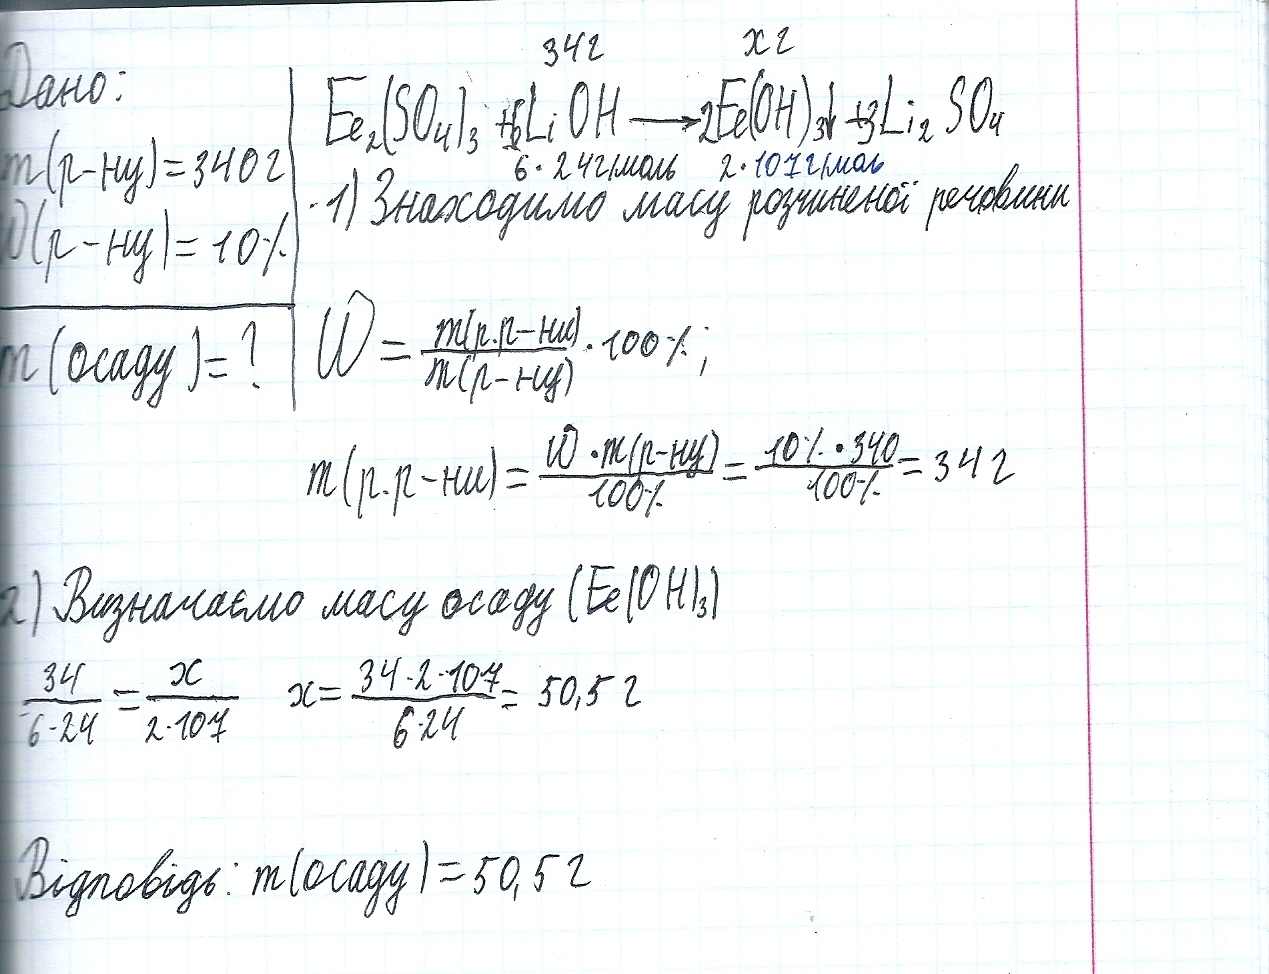 Дано:
m(р-ну)=340г
W(р-ну)=10%
m(осаду)=?
34г xг
Fe₂(SO₄)₃ + 6LiOH → 2Fe(OH)₃↓ + 3Li₂SO₄
6·24г/моль 2·107г/моль
1) Знаходимо масу розчиненої речовини
W = m(р.р-ни)/m(р-ну) · 100%;
m(р.р-ни) = W·m(р-ну)/100% = 10%·340/100% = 34г
2) Визначаємо масу осаду (Fe(OH)₃)
34/6·24 = x/2·107 x = 34·2·107/6·24 = 50,5г
Відповідь: m(осаду)=50,5г